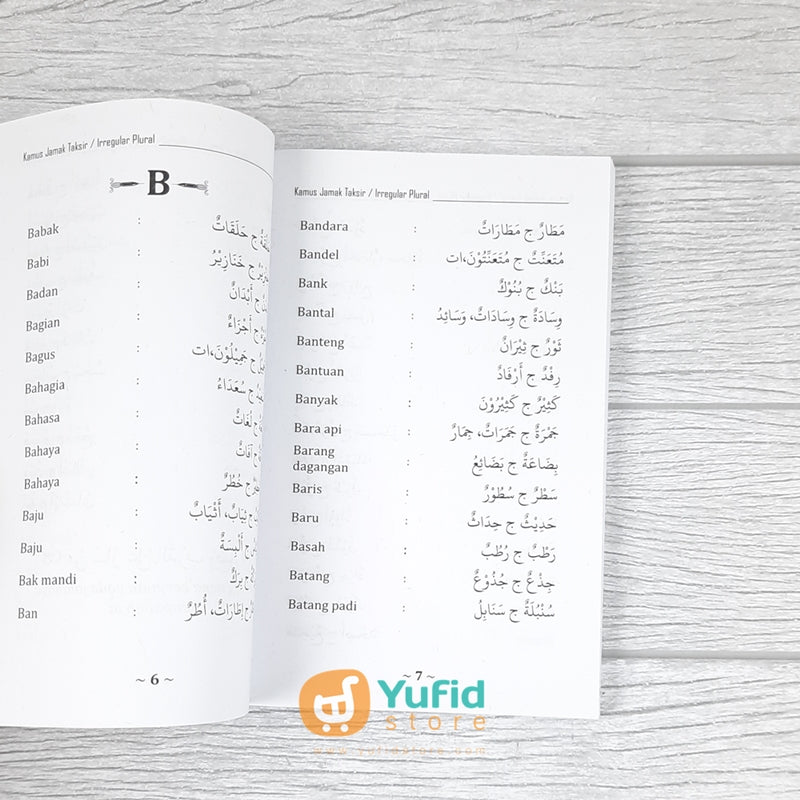 Kamus Jamak Taksir / Irregular Plural
B
Babak : ج حَلَقَاتٌ
Babi : ج خَنَازِيْرُ
Badan : ج أَبْدَانٌ
Bagian : ج أَجْزَاءٌ
Bagus : ج جَمِيْلُوْنَ،ات
Bahagia : ج سُعَدَاءُ
Bahasa : ج لُغَاتٌ
Bahaya : ج آفَاتٌ
Bahaya : ج خُطُرٌ
Baju : ج ثِيَابٌ، أَثْيَابٌ
Baju : ج أَلْبِسَةٌ
Bak mandi : ج بِرَكٌ
Ban : ج إِطَارَاتٌ، أُطُرٌ
~ 6 ~
Kamus Jamak Taksir / Irregular Plural
Bandara : مَطَارٌ ج مَطَارَاتٌ
Bandel : مُتَعَنِّتٌ ج مُتَعَنِّتُوْنَ،ات
Bank : بَنْكٌ ج بُنُوْكٌ
Bantal : وِسَادَةٌ ج وِسَادَاتٌ، وَسَائِدُ
Banteng : ثَوْرٌ ج ثِيْرَانٌ
Bantuan : رِفْدٌ ج أَرْفَادٌ
Banyak : كَثِيْرٌ ج كَثِيْرُوْنَ
Bara api : جَمْرَةٌ ج جَمَرَاتٌ، جِمَارٌ
Barang
dagangan : بِضَاعَةٌ ج بَضَائِعُ
Baris : سَطْرٌ ج سُطُوْرٌ
Baru : حَدِيْثٌ ج حِدَاثٌ
Basah : رَطْبٌ ج رُطُبٌ
Batang : جِذْعٌ ج جُذُوْعٌ
Batang padi : سُنْبُلَةٌ ج سَنَابِلُ
~ 7 ~
Yufid
store
www.yufidstore.com